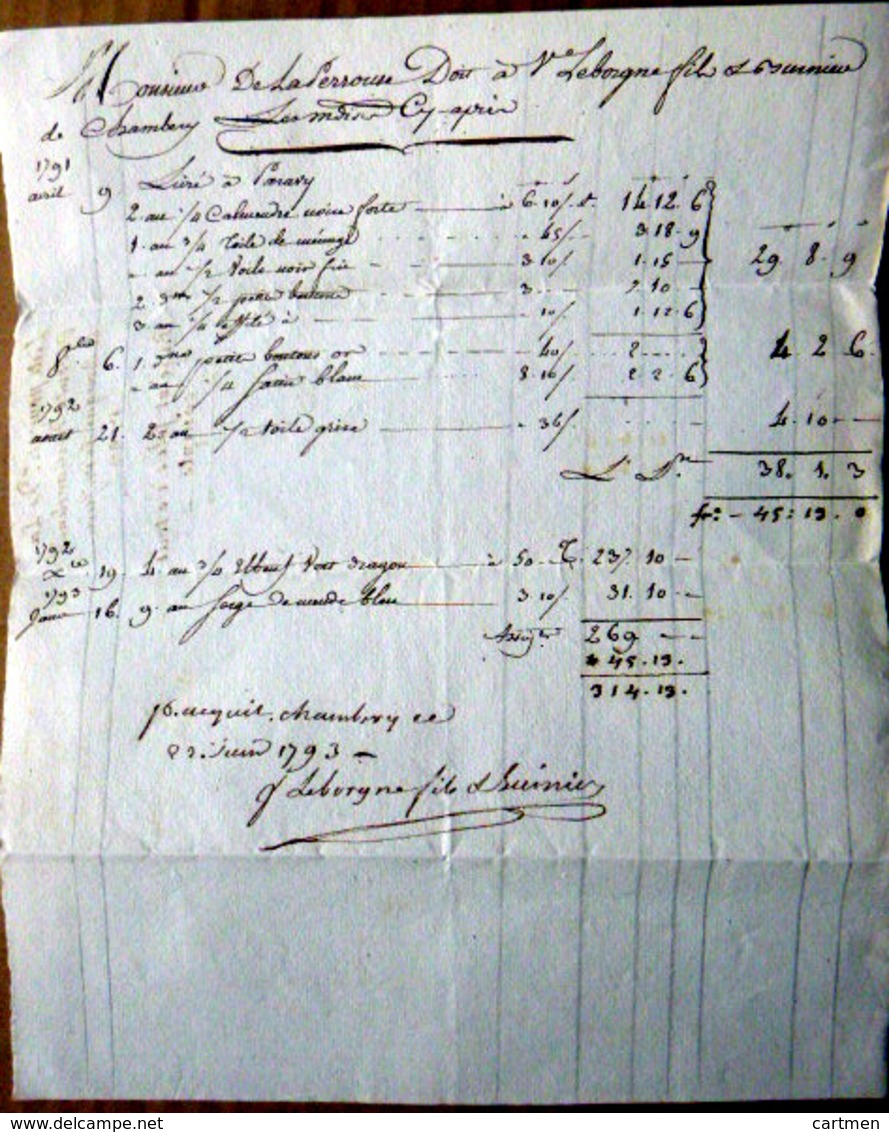 Monsieur De La Perrouse Doit à Ve Leborgne fils &
de Chambery Les mdises Cy après
1791
avril 9 Livré à Paravy
2 au 1/4 Calmendre noire forte à 6. 10/. 14. 12. 6
1. au 3/4 Toile de ménage 45/ 3. 18. 9
au 1/2 voile noir 3. 10/ 1. 15 29. 8. 9
2 1/2 boutons 3 2. 10
3 au 1/4 à 10/ 1. 12. 6
8bre 6. 1. petits boutons or 40/ 2 4. 2. 6
au 1/4 Satin blanc 8. 10/. 2. 2. 6
1792
aoust 21. 2. au 1/2 toile grise 36/. 4. 10
L. 38. 1. 3
fr. 45: 13. 0
1792
Xbre 19. 4. au 3/4 Elbeuf vert dragon à 50 237. 10
1793
Janv 16. 9. au Serge de bleu 3. 10/. 31. 10
269
45. 13.
314. 13.
p. acquit. Chambery ce
Juin 1793
Leborgne fils &
cartmen
delcampe.net